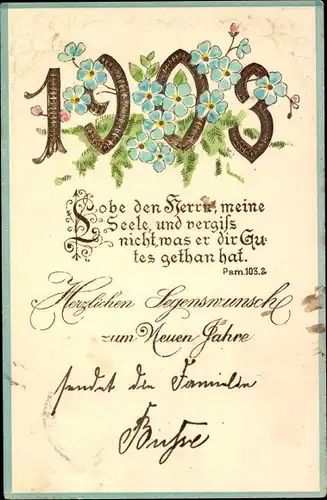 1903
Lobe den Herrn, meine
Seele, und vergiss
nicht, was er dir Gu-
tes gethan hat.
Psm. 103.2
Herzlichen Segenswunsch
zum Neuen Jahre
sendet die Familie